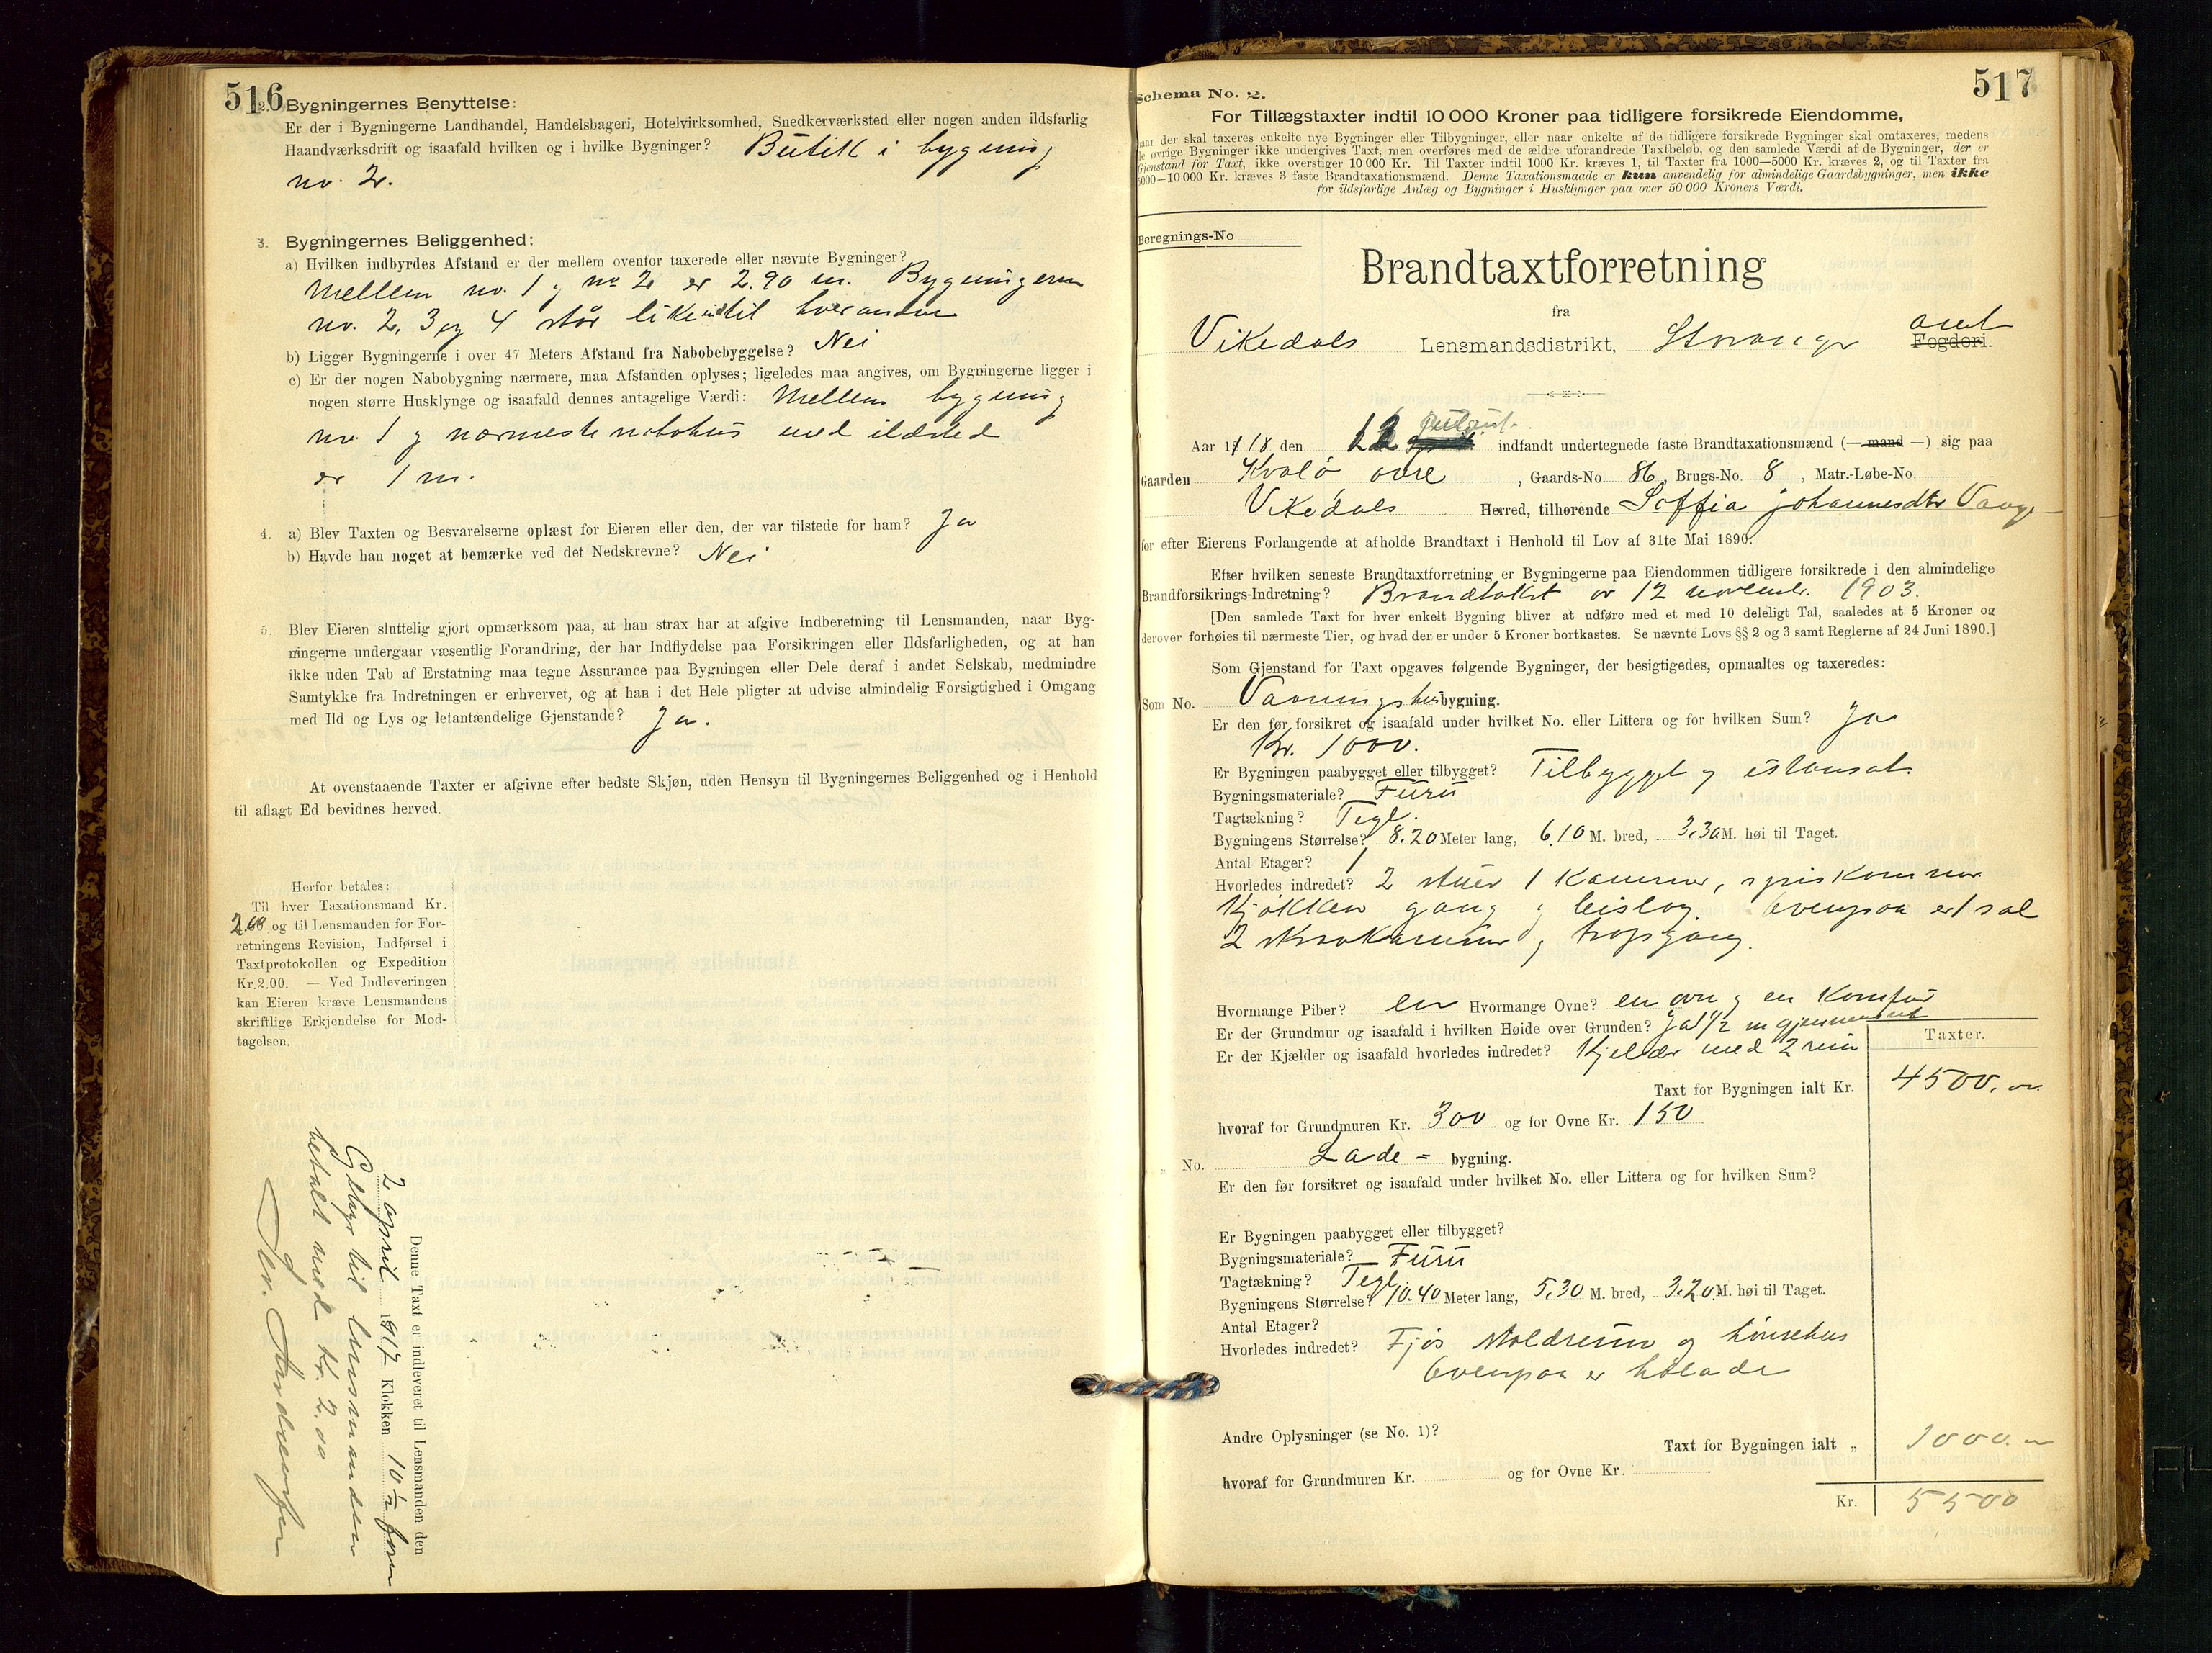 516
2. Bygningernes Benyttelse:
Er der i Bygningerne Landhandel, Handelsbageri, Hotelvirksomhed, Snedkerværksted eller nogen anden ildsfarlig
Haandværksdrift og isaafald hvilken og i hvilke Bygninger? Butik i bygning
no. 2.
3. Bygningernes Beliggenhed:
a) Hvilken indbyrdes Afstand er der mellem ovenfor taxerede eller nævnte Bygninger?
Mellem no. 1 og no 2 er 2.90 m. Bygningerne
no. 2, 3 og 4 står like indtil hverandre
b) Ligger Bygningerne i over 47 Meters Afstand fra Nabobebyggelse? Nei
c) Er der nogen Nabobygning nærmere, maa Afstanden oplyses; ligeledes maa angives, om Bygningerne ligger i
nogen større Husklynge og isaafald dennes antagelige Værdi: Mellem bygning
no. 1 og nærmeste nabohus med ildsted
er 1 m.
4. a) Blev Taxten og Besvarelserne oplæst for Eieren eller den, der var tilstede for ham? Ja
b) Havde han noget at bemærke ved det Nedskrevne? Nei
5. Blev Eieren sluttelig gjort opmærksom paa, at han strax har at afgive Indberetning til Lensmanden, naar Byg-
ningerne undergaar væsentlig Forandring, der har Indflydelse paa Forsikringen eller Ildsfarligheden, og at han
ikke uden Tab af Erstatning maa tegne Assurance paa Bygningen eller Dele deraf i andet Selskab, medmindre
Samtykke fra Indretningen er erhvervet, og at han i det Hele pligter at udvise almindelig Forsigtighed i Omgang
med Ild og Lys og letantændelige Gjenstande? Ja.
At ovenstaaende Taxter er afgivne efter bedste Skjøn, uden Hensyn til Bygningernes Beliggenhed og i Henhold
til aflagt Ed bevidnes herved.
Herfor betales:
Til hver Taxationsmand Kr.
2.00 og til Lensmanden for For-
retningens Revision, Indførsel i
Taxtprotokollen og Expedition
Kr. 2.00. — Ved Indleveringen
kan Eieren kræve Lensmandens
skriftlige Erkjendelse for Mod-
tagelsen.
Denne Taxt er indleveret til Lensmanden den
2 april 1917 Klokken 10 1/2 form
Gebyr til lensmanden
betalt med kr. 2.00
517
Schema No. 2.
For Tillægstaxter indtil 10 000 Kroner paa tidligere forsikrede Eiendomme,
naar der skal taxeres enkelte nye Bygninger eller Tilbygninger, eller naar enkelte af de tidligere forsikrede Bygninger skal omtaxeres, medens
de øvrige Bygninger ikke undergives Taxt, men overføres med de ældre uforandrede Taxtbeløb, og den samlede Værdi af de Bygninger, der er
Gjenstand for Taxt, ikke overstiger 10 000 Kr. Til Taxter indtil 1000 Kr. kræves 1, til Taxter fra 1000—5000 Kr. kræves 2, og til Taxter fra
5000—10 000 Kr. kræves 3 faste Brandtaxationsmænd. Denne Taxationsmaade er kun anvendelig for almindelige Gaardsbygninger, men ikke
for ildsfarlige Anlæg og Bygninger i Husklynger paa over 50 000 Kroners Værdi.
Beregnings-No
Brandtaxtforretning
fra
Vikedals Lensmandsdistrikt, Stavanger amt Fogderi.
Aar 1918 den 12 indfandt undertegnede faste Brandtaxationsmænd (— mand —) sig paa
Gaarden Kvalø øvre, Gaards-No. 86, Brugs-No. 8, Matr.-Løbe-No.
Vikedals Herred, tilhørende Soffia Johannesdtr Vaage
for efter Eierens Forlangende at afholde Brandtaxt i Henhold til Lov af 31te Mai 1890.
Efter hvilken seneste Brandtaxtforretning er Bygningerne paa Eiendommen tidligere forsikrede i den almindelige
Brandforsikrings-Indretning? Brandtakst av 12 novembr. 1903.
[Den samlede Taxt for hver enkelt Bygning bliver at udføre med et med 10 deleligt Tal, saaledes at 5 Kroner og
derover forhøies til nærmeste Tier, og hvad der er under 5 Kroner bortkastes. Se nævnte Lovs §§ 2 og 3 samt Reglerne af 24 Juni 1890.]
Som Gjenstand for Taxt opgaves følgende Bygninger, der besigtigedes, opmaaltes og taxeredes:
Som No. Vaaningshusbygning.
Er den før forsikret og isaafald under hvilket No. eller Littera og for hvilken Sum? Ja
Kr. 1000.
Er Bygningen paabygget eller tilbygget? Tilbygget og istansat.
Bygningsmateriale? Furu
Tagtækning? Tegl.
Bygningens Størrelse? 8.20 Meter lang, 6.10 M. bred, 3.30 M. høi til Taget.
Antal Etager? 1
Hvorledes indredet? 2 stuer 1 kammer, spiskammer
kjøkken gang og bislag. Ovenpaa er 1 sal
2 skraakammer og trapgang.
Hvormange Piber? en Hvormange Ovne? en ovn og en komfur
Er der Grundmur og isaafald i hvilken Høide over Grunden? ja 1/2 m gjennemsnit
Er der Kjælder og isaafald hvorledes indredet? Kjelder med 2 rum
Taxter.
Taxt for Bygningen ialt Kr. 4500. oo
hvoraf for Grundmuren Kr. 300 og for Ovne Kr. 150
No. Lade - bygning.
Er den før forsikret og isaafald under hvilket No. eller Littera og for hvilken Sum?
Er Bygningen paabygget eller tilbygget?
Bygningsmateriale? Furu
Tagtækning? Tegl.
Bygningens Størrelse? 10.40 Meter lang, 5.30 M. bred, 3.20 M. høi til Taget.
Antal Etager?
Hvorledes indredet? Fjøs skoldrum og hønsehus
Ovenpaa er hølade
Andre Oplysninger (se No. 1)?
Taxt for Bygningen ialt „ 1000. oo
hvoraf for Grundmuren Kr. og for Ovne Kr.
Kr. 5500